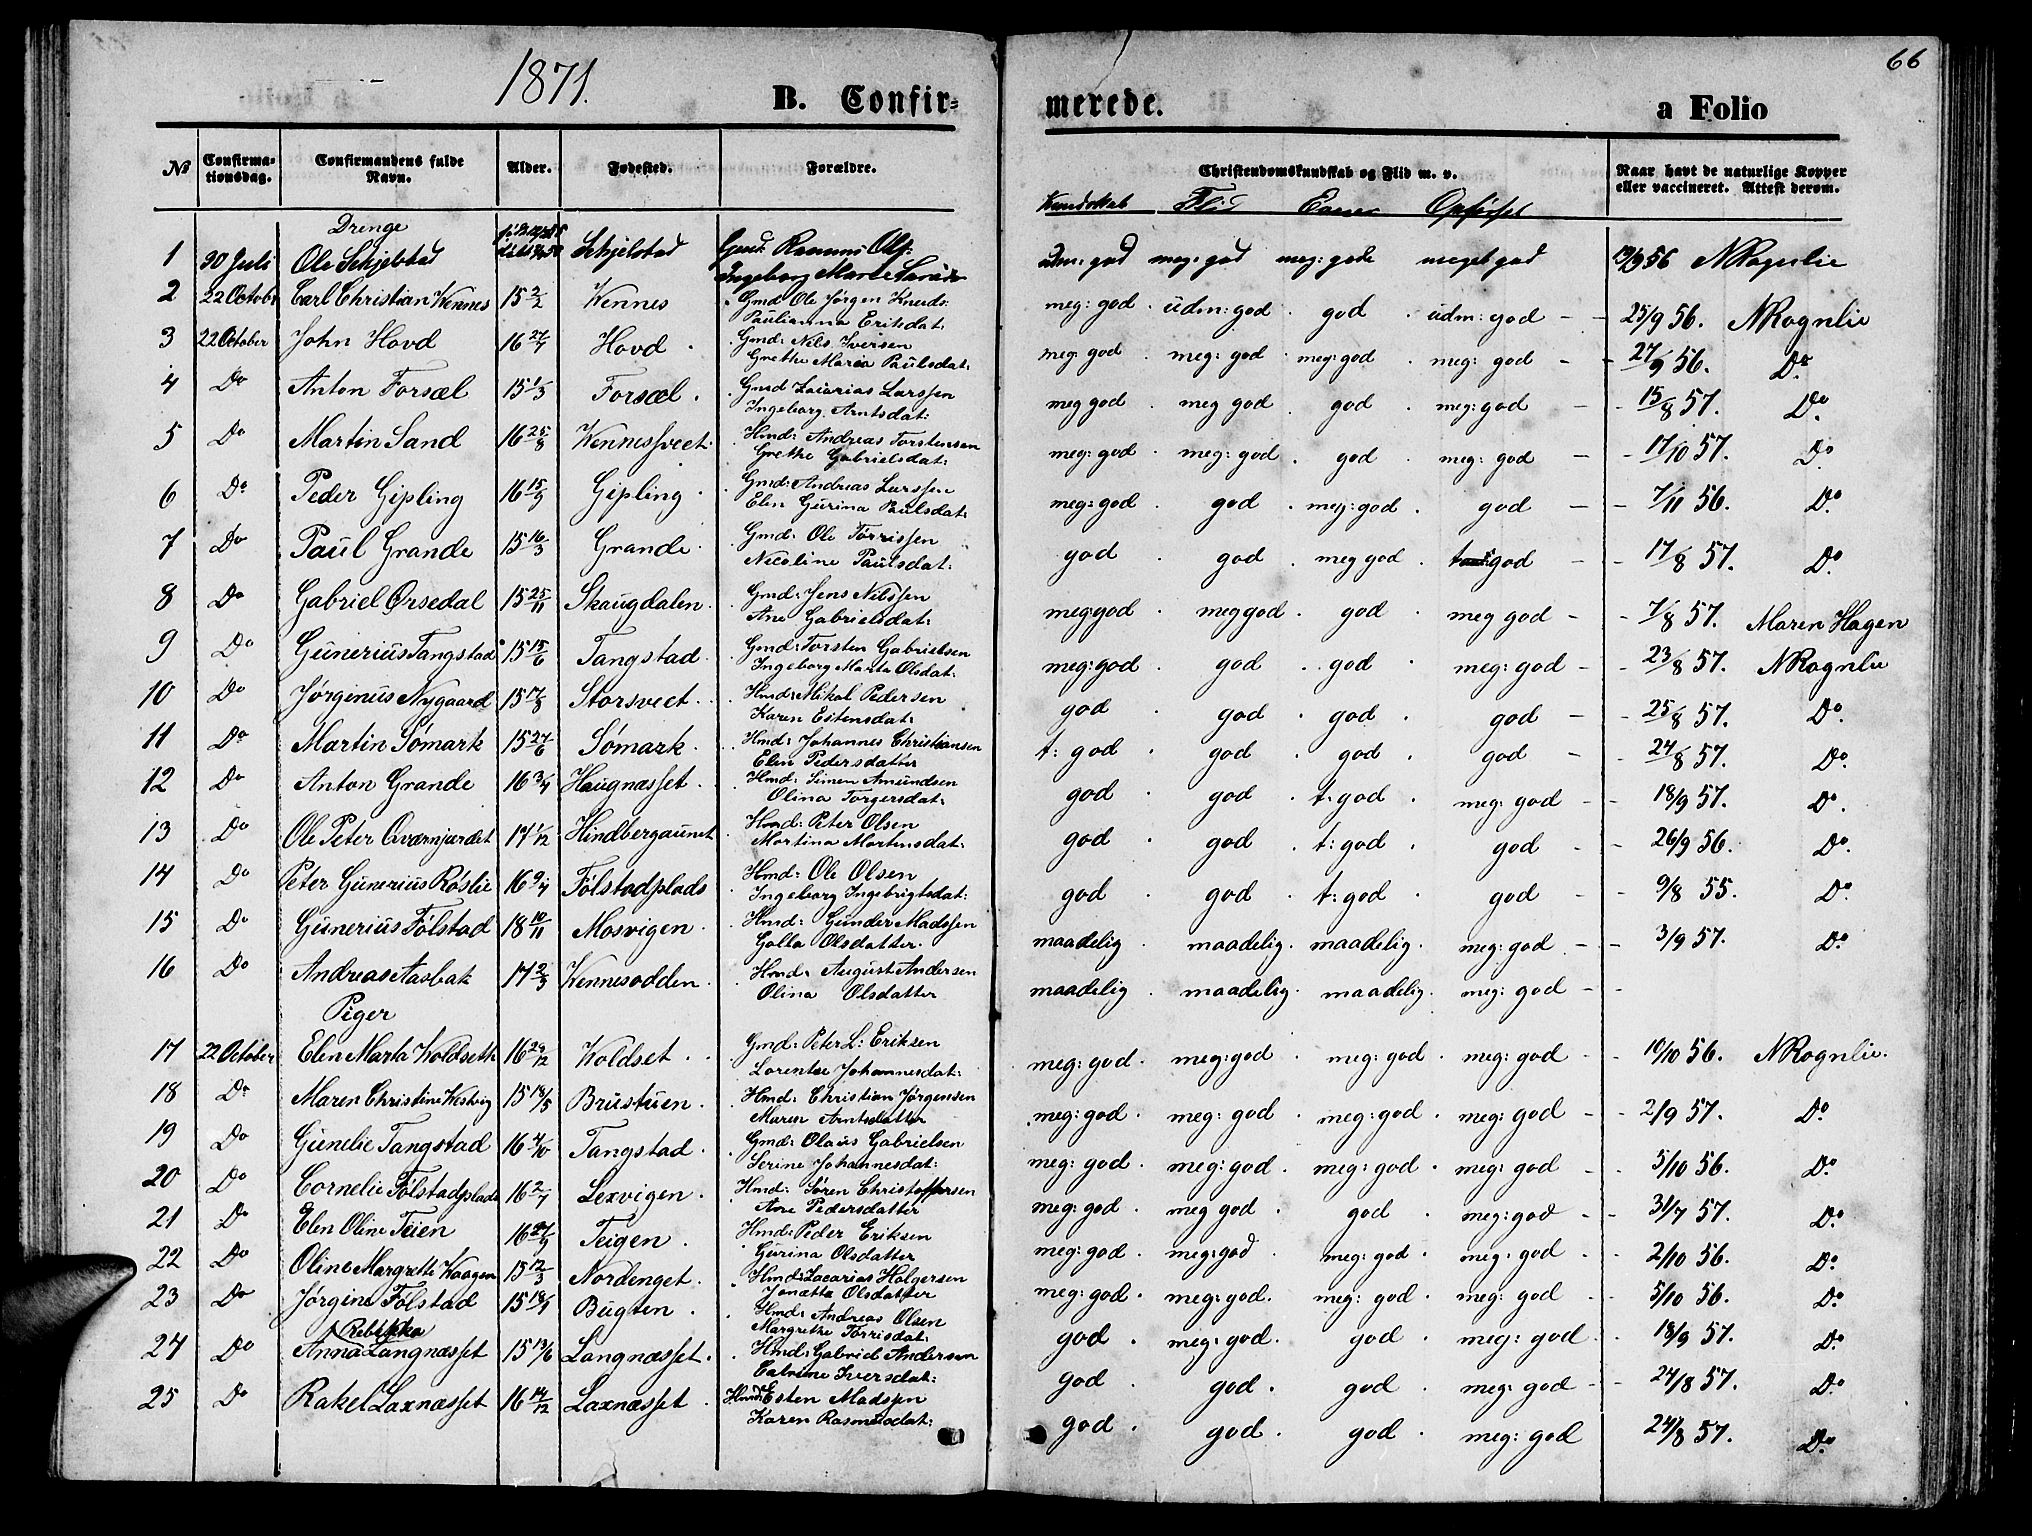 66
1871.
B. Confir=
merede.
a Folio
No
Confirma=
tionsdag.
Confirmandens fulde
Navn.
Alder.
Fødested.
Forældre.
Christendomskundskab og Flid m. v.
Naar havt de naturlige Kopper
eller vaccineret. Attest derom.
Kundskab Flid Evner Opførsel
Drenge
1 30 Juli Ole Schjelstad Schjelstad Gmd. Rasmus Ols: udm: god meg: god meg: gode meget god 19/9 56 N Rognlie
Ingeborg Marie
2 22 Octobr Carl Christian Vennes 15 2/2 Vennes Gmd Ole Jørgen Knuds: meg: god udm: god god udm: god 25/9 56. N Rognlie
Paulianna Eriksdat:
3 22 October John Hovd 16 27/7 Hovd Gmd: Nils Iversen meg: god meg: god meg: god meg: god 27/9 56. Do
Grethe Maria Paulsdat:
4 Do Anton Forsæl 15 1/3 Forsæl Gmd Zacarias Larssen meg god meg god god meg: god 15/8 57. Do
Ingeborg Arntsdat:
5 Do Martin Sand 16 25/8 Vennessveet Hmd: Andreas Torstensen meg: god meg: god god meg: god 17/10 57. Do
Grethe Gabrielsdat:
6 Do Peder Gipling 16 15/9 Gipling Gmd: Andreas Larssen meg: god god meg: god god 7/11 56. Do
Elen Gurina Paulsdat:
7 Do Paul Grande 15 16/3 Grande Gmd: Ole Tørrissen god god meg god god 17/8 57. Do
Nicoline Paulsdat:
8 Do Gabriel Ørsedal 15 25/11 Skaugdalen Gmd: Jens Nilssen meg god meg god god meg god 7/8 57. Maren Hagen
Ane Gabrielsdat:
9 Do Gunerius Tangstad 15 15/6 Tangstad Gmd: Torsten Gabrielsen meg: god god god meg: god 23/8 57. N Rognlie
Ingeborg Marta Olsdat:
10 Do Jørginus Nygaard 15 17/8 Storsveet Hmd: Mikal Pedersen god god god god 25/8 57. Do
Karen Estensdat:
11 Do Martin Sømark 15 27/6 Sømark Hmd: Johannes Christiansen t: god god god god 24/8 57. Do
Elen Pedersdatter
12 Do Anton Grande 16 3/4 Haugnæsset Hmd: Simen Amundsen god god t: god meg: god 18/9 57. Do
Olina Torgersdat:
13 Do Ole Peter Qværnjærdet 17 1/12 Hindbergaunet Hmd: Peter Olsen god god t: god god 26/9 56. Do
Martina Mortensdat:
14 Do Peter Gunerius Røslie 16 9/4 Følstadplads Hmd: Ole Olsen god god t: god god 9/8 55. Do
Ingeborg Ingebrigtsdat:
15 Do Gunerius Følstad 18 10/11 Mosvigen Hmd: Gunder Madssen maadelig maadelig maadelig meg: god 3/9 57. Do
Golla Olsdatter
16 Do Andreas Aasbak 17 2/3 Vennesodden Hmd: August Andersen maadelig maadelig maadelig meg: god
Olina Olsdatter
Piger
17 22 October Elen Marta Voldseth 16 29/12 Voldset Gmd: Peter L: Eriksen meg: god meg: god meg: god meg: god 10/10 56. N Rognlie.
Lorentse Johannesdat:
18 Do Maren Christine Westvig 15 18/5 Brustuen Hmd: Christian Jørgensen meg: god meg: god meg: god meg: god 2/9 57. Do
Maren Arntsdatter
19 Do Gunelie Tangstad 16 4/10 Tangstad Gmd: Olaus Gabrielsen meg: god meg: god meg: god meg: god 5/10 56. Do
Serine Johannesdat:
20 Do Cornelie Følstadplads 16 2/7 Lexvigen Hmd: Søren Christoffersen meg: god meg god god meg: god 31/7 57. Do
Ane Pedersdatter
21 Do Elen Oline Teien 16 27/9 Teigen Hmd: Peder Eriksen meg: god meg: god meg: god meg: god 2/10 56. Do
Gurina Olsdatter
22 Do Oline Margrette Kaagen 15 12/3 Nordenget Hmd: Zacarias Holgersen meg: god meg: god. meg: god meg: god 5/10 56. Do
Jonetta Olsdatter
23 Do Jørgine Følstad 15 18/4 Bugten Hmd: Andreas Olsen god meg: god. god meg: god 18/9 57. Do
Margrethe Tørrisdat:
Rebekka
24 Do Anna Langnæsset 15 13/6 Langnæsset Hmd: Gabriel Andersen god god god meg: god 24/8 57. Do
Catrine Iversdat:
25 Do Rakel Laxnæsset 16 14/12 Laxnæsset Hmd: Esten Madssen god god god meg: god 24/8 57. Do
Karen Rasmusdat: